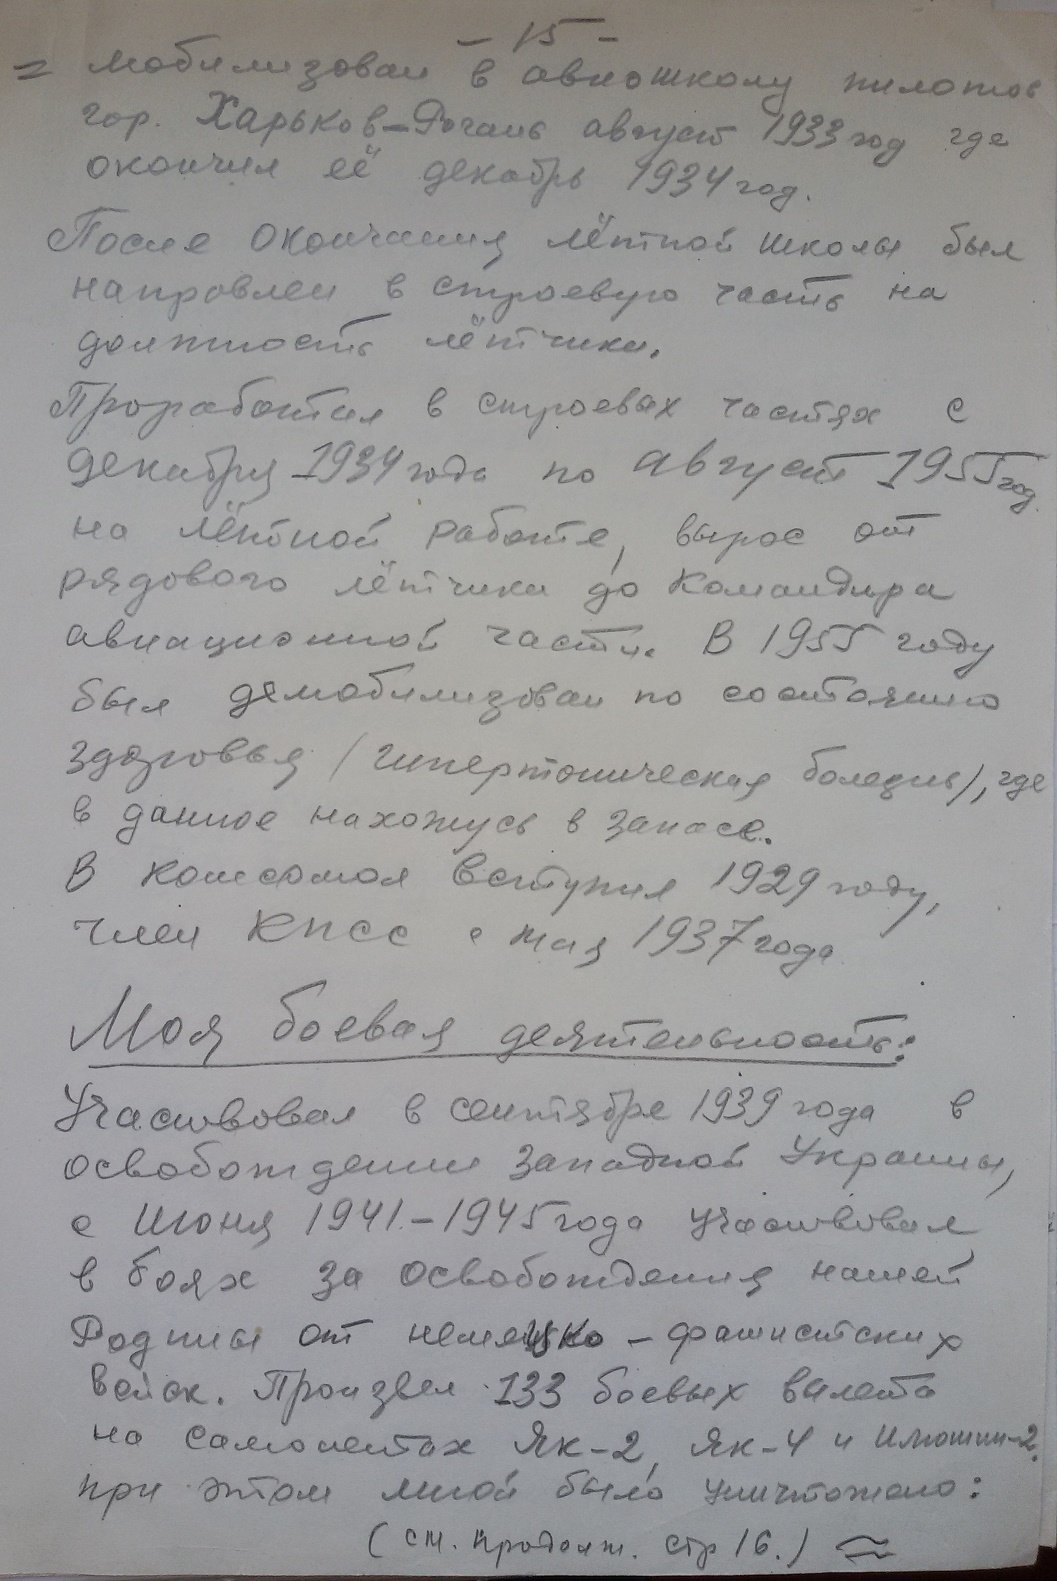 - 15 -
= мобилизован в авиошколу пилотов
гор. Харьков-Рогань август 1933 год где
окончил её декабрь 1934 год.
После окончания лётной школы был
направлен в строевую часть на
должность лётчика.
Проработал в строевах частях с
декабря 1934 года по август 1955 год
на лётной работе, вырос от
рядового лётчика до командира
авиационной части. В 1955 году
был демобилизован по состоянию
здоровья (гипертоническая болезнь), где
в данное нахожусь в запасе.
В комсомол вступил 1929 году,
член КПСС с мая 1937 года
Моя боевая деятельность:
Участвовал в сентябре 1939 года в
освобождении Западной Украины,
с Июня 1941.-1945 года участвовал
в боях за освобождения нашей
Родины от немецко-фашистских
войск. Произвел 133 боевых вылета
на самолетах Як-2, Як-4 и Илюшин-2.
при этом мной было уничтожено:
(см. продолж. стр 16.) ≈